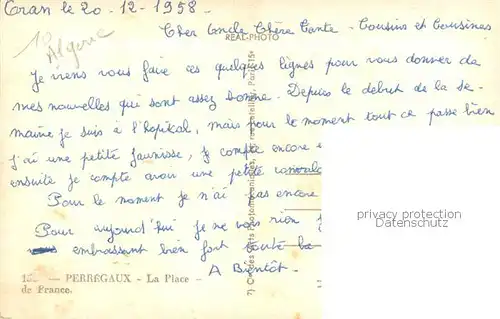 Oran le 20-12-1958-
Algérie
Cher Oncle Chère Tante - Cousins et Cousines
REAL-PHOTO
Je viens vous faire ces quelques lignes pour vous donner de
mes nouvelles qui sont assez bonne. Depuis le début de la se-
maine je suis à l'hopital, mais pour le moment tout ce passe bien
j'ai une petite jaunisse, je compte encore
ensuite je compte avoir une petite
Pour le moment je n'ai pas encore
privacy protection
Datenschutz
Pour aujourd'hui je ne vois rien
embrassant bien fort toute la
A Bientôt-
PERRÉGAUX - La Place
de France.